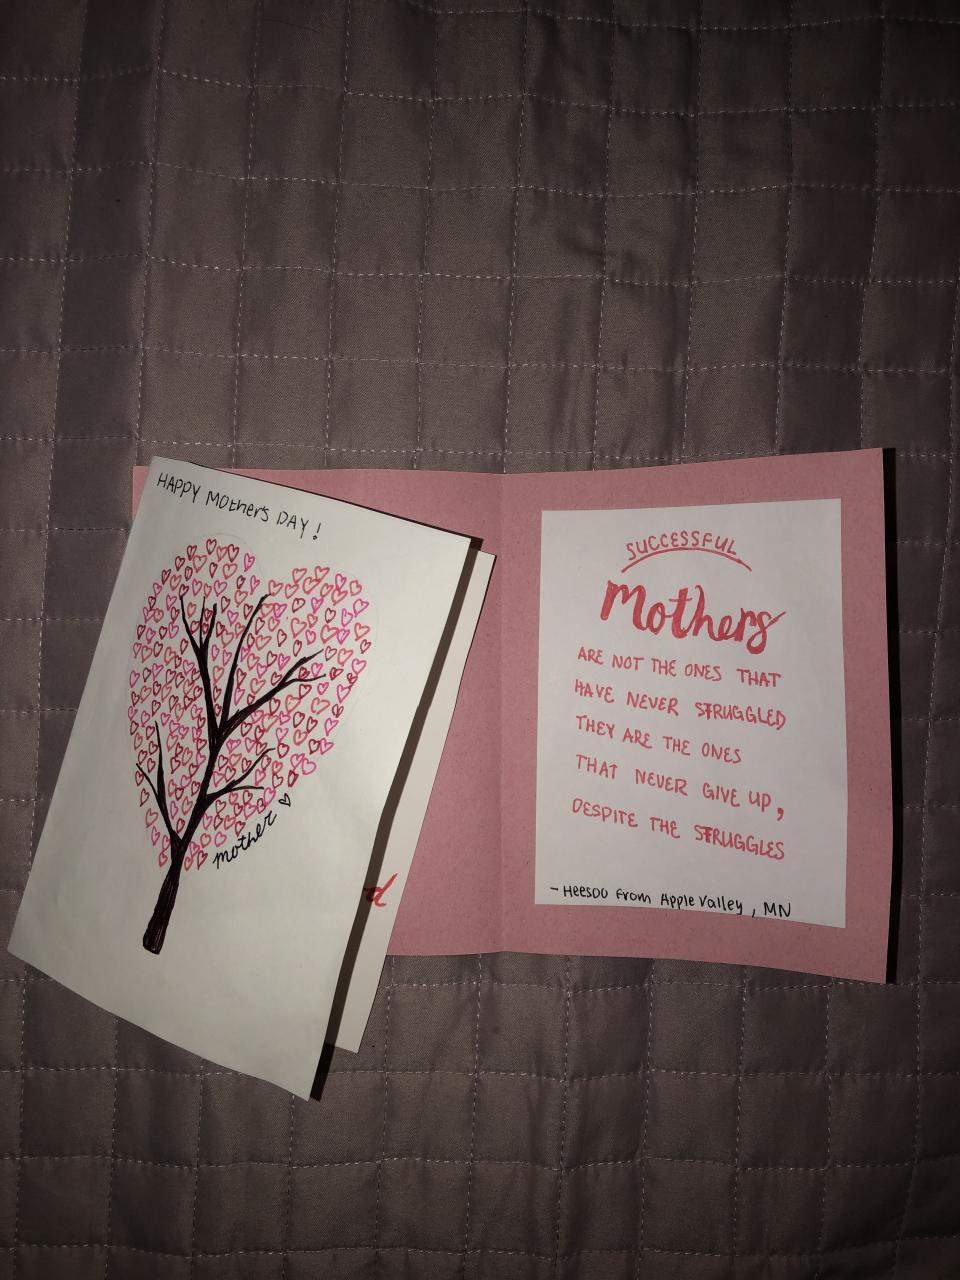 HAPPY Mother's DAY !
mother
d
SUCCESSFUL
Mothers
ARE NOT THE ONES THAT
HAVE NEVER STRUGGLED
THEY ARE THE ONES
THAT NEVER GIVE UP,
DESPITE THE STRUGGLES
- Heesoo From Apple Valley, MN